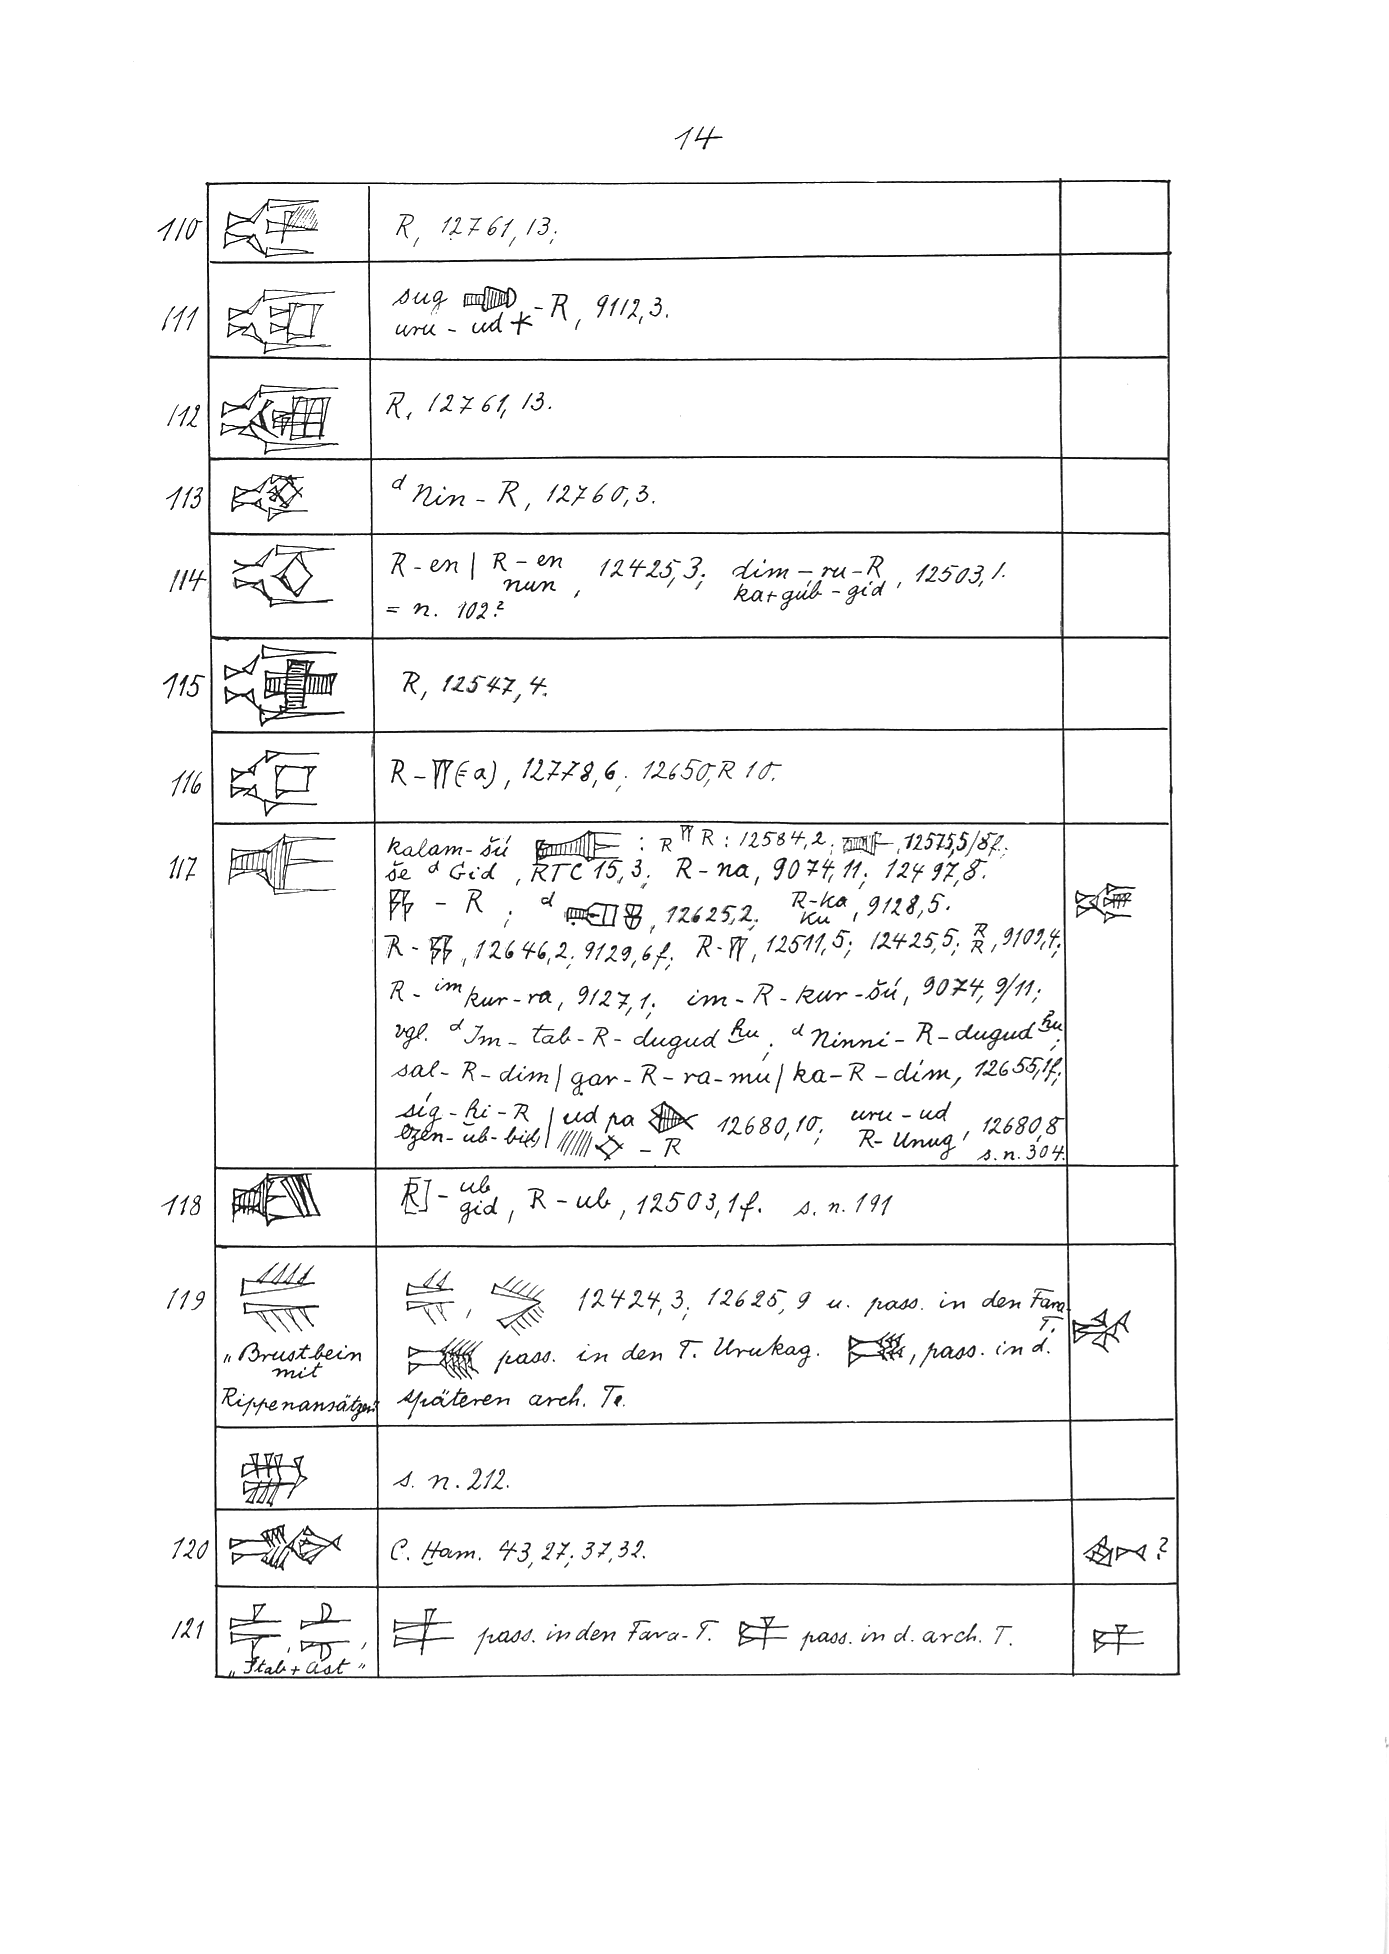 14
110 R, 12761,13;
111 sug
uru - ud - R, 9112,3.
112 R, 12761,13.
113 d Nin - R, 12760,3.
114 R - en | R - en
nun, 12425,3; dim - ru - R
ka+gúb - gid, 12503,1.
= n. 102?
115 R, 12547,4.
116 R - (-a), 12778,6; 12650,R 10.
117 kalam - šú : R R : 12584,2; , 12575,5/8f.;
še d Gid, RTC 15,3; R - na, 9074,11; 12497,8.
- R ; d , 12625,2; R-ka
ku , 9128,5.
R - , 12646,2; 9129,6f.; R - , 12511,5; 12425,5; R
R , 9109,4;
R - im kur - ra, 9127,1; im - R - kur - šú, 9074,9/11;
vgl. d Im - tab - R - dugud ḫu; d Ninni - R - dugud ḫu;
sal - R - dim | gar - R - ra - mú | ka - R - dim, 12655,1f.;
síg - ḫi - R
ezen - ub - | ud pa - R 12680,10; uru - ud
R - Unug, 12680,8
s. n. 304.
118 [R] - ub
gid, R - ub, 12503,1f. s. n. 191
119 12424,3; 12625,9 u. pass. in den Fara-
T.
„Brustbein
mit
Rippenansätzen“
pass. in den T. Urukag. , pass. in d.
späteren arch. T.
s. n. 212.
120 C. Ḫam. 43,27; 37,32. ?
121 „Stab + Ast“
pass. in den Fara-T. pass. in d. arch. T.